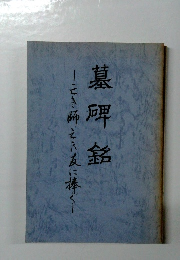 墓碑銘
―亡き師と亡き友に捧ぐ―